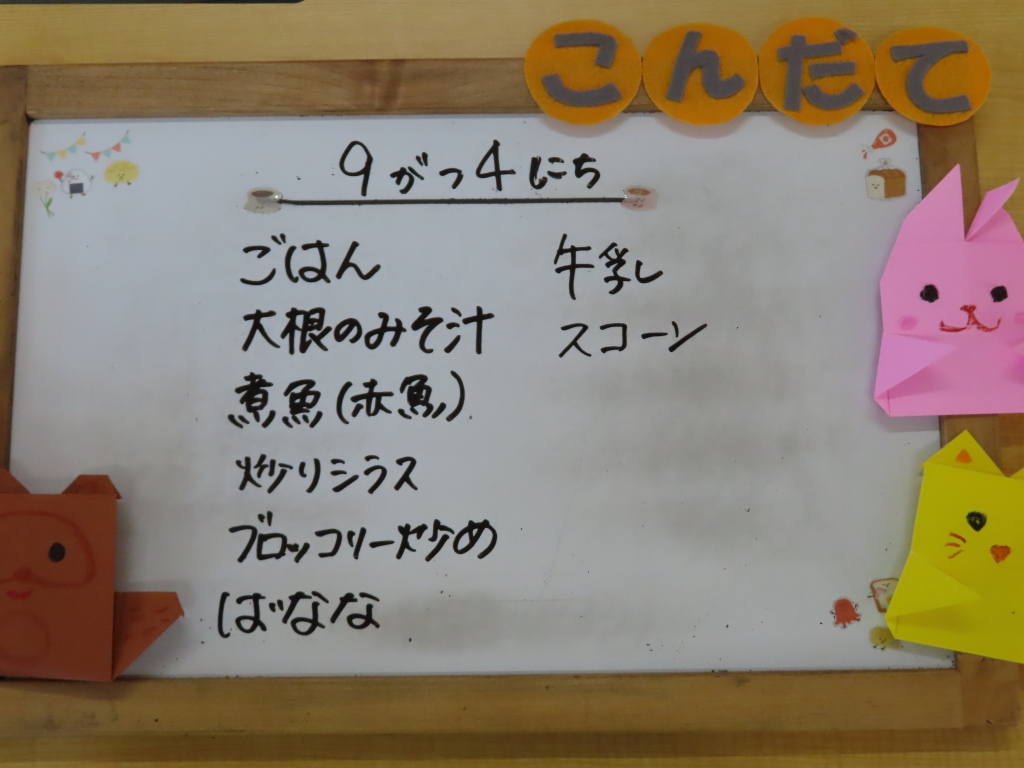 こんだて
9がつ4にち
ごはん
大根のみそ汁
煮魚(赤魚)
炒りシラス
ブロッコリー炒め
ばなな
牛乳
スコーン